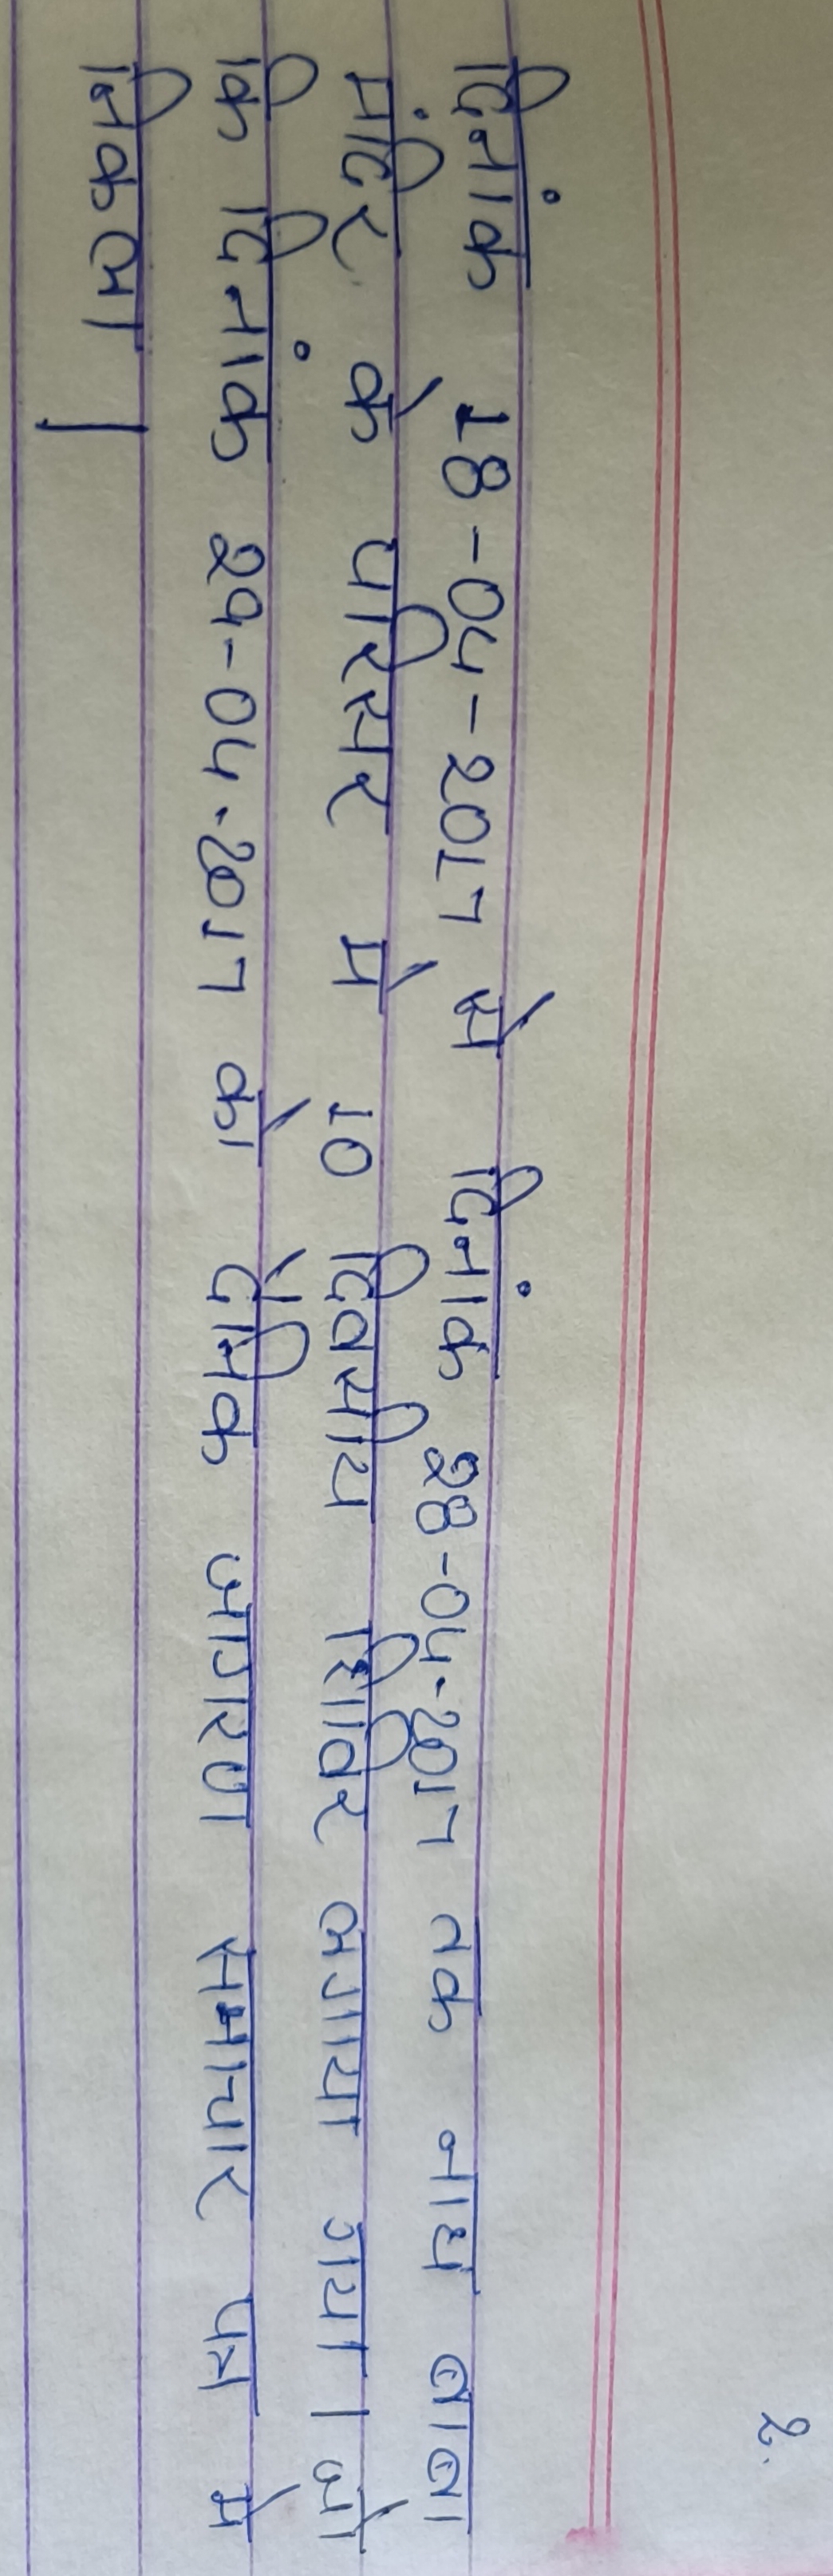 2.
दिनांक 18-04-2017 से दिनांक 28-04-2017 तक नाथ बाबा
मंदिर के परिसर मे 10 दिवसीय शिविर लगाया गया। जो
कि दिनांक 29-04-2017 को दैनिक जागरण समाचार पत्र मे
निकला।